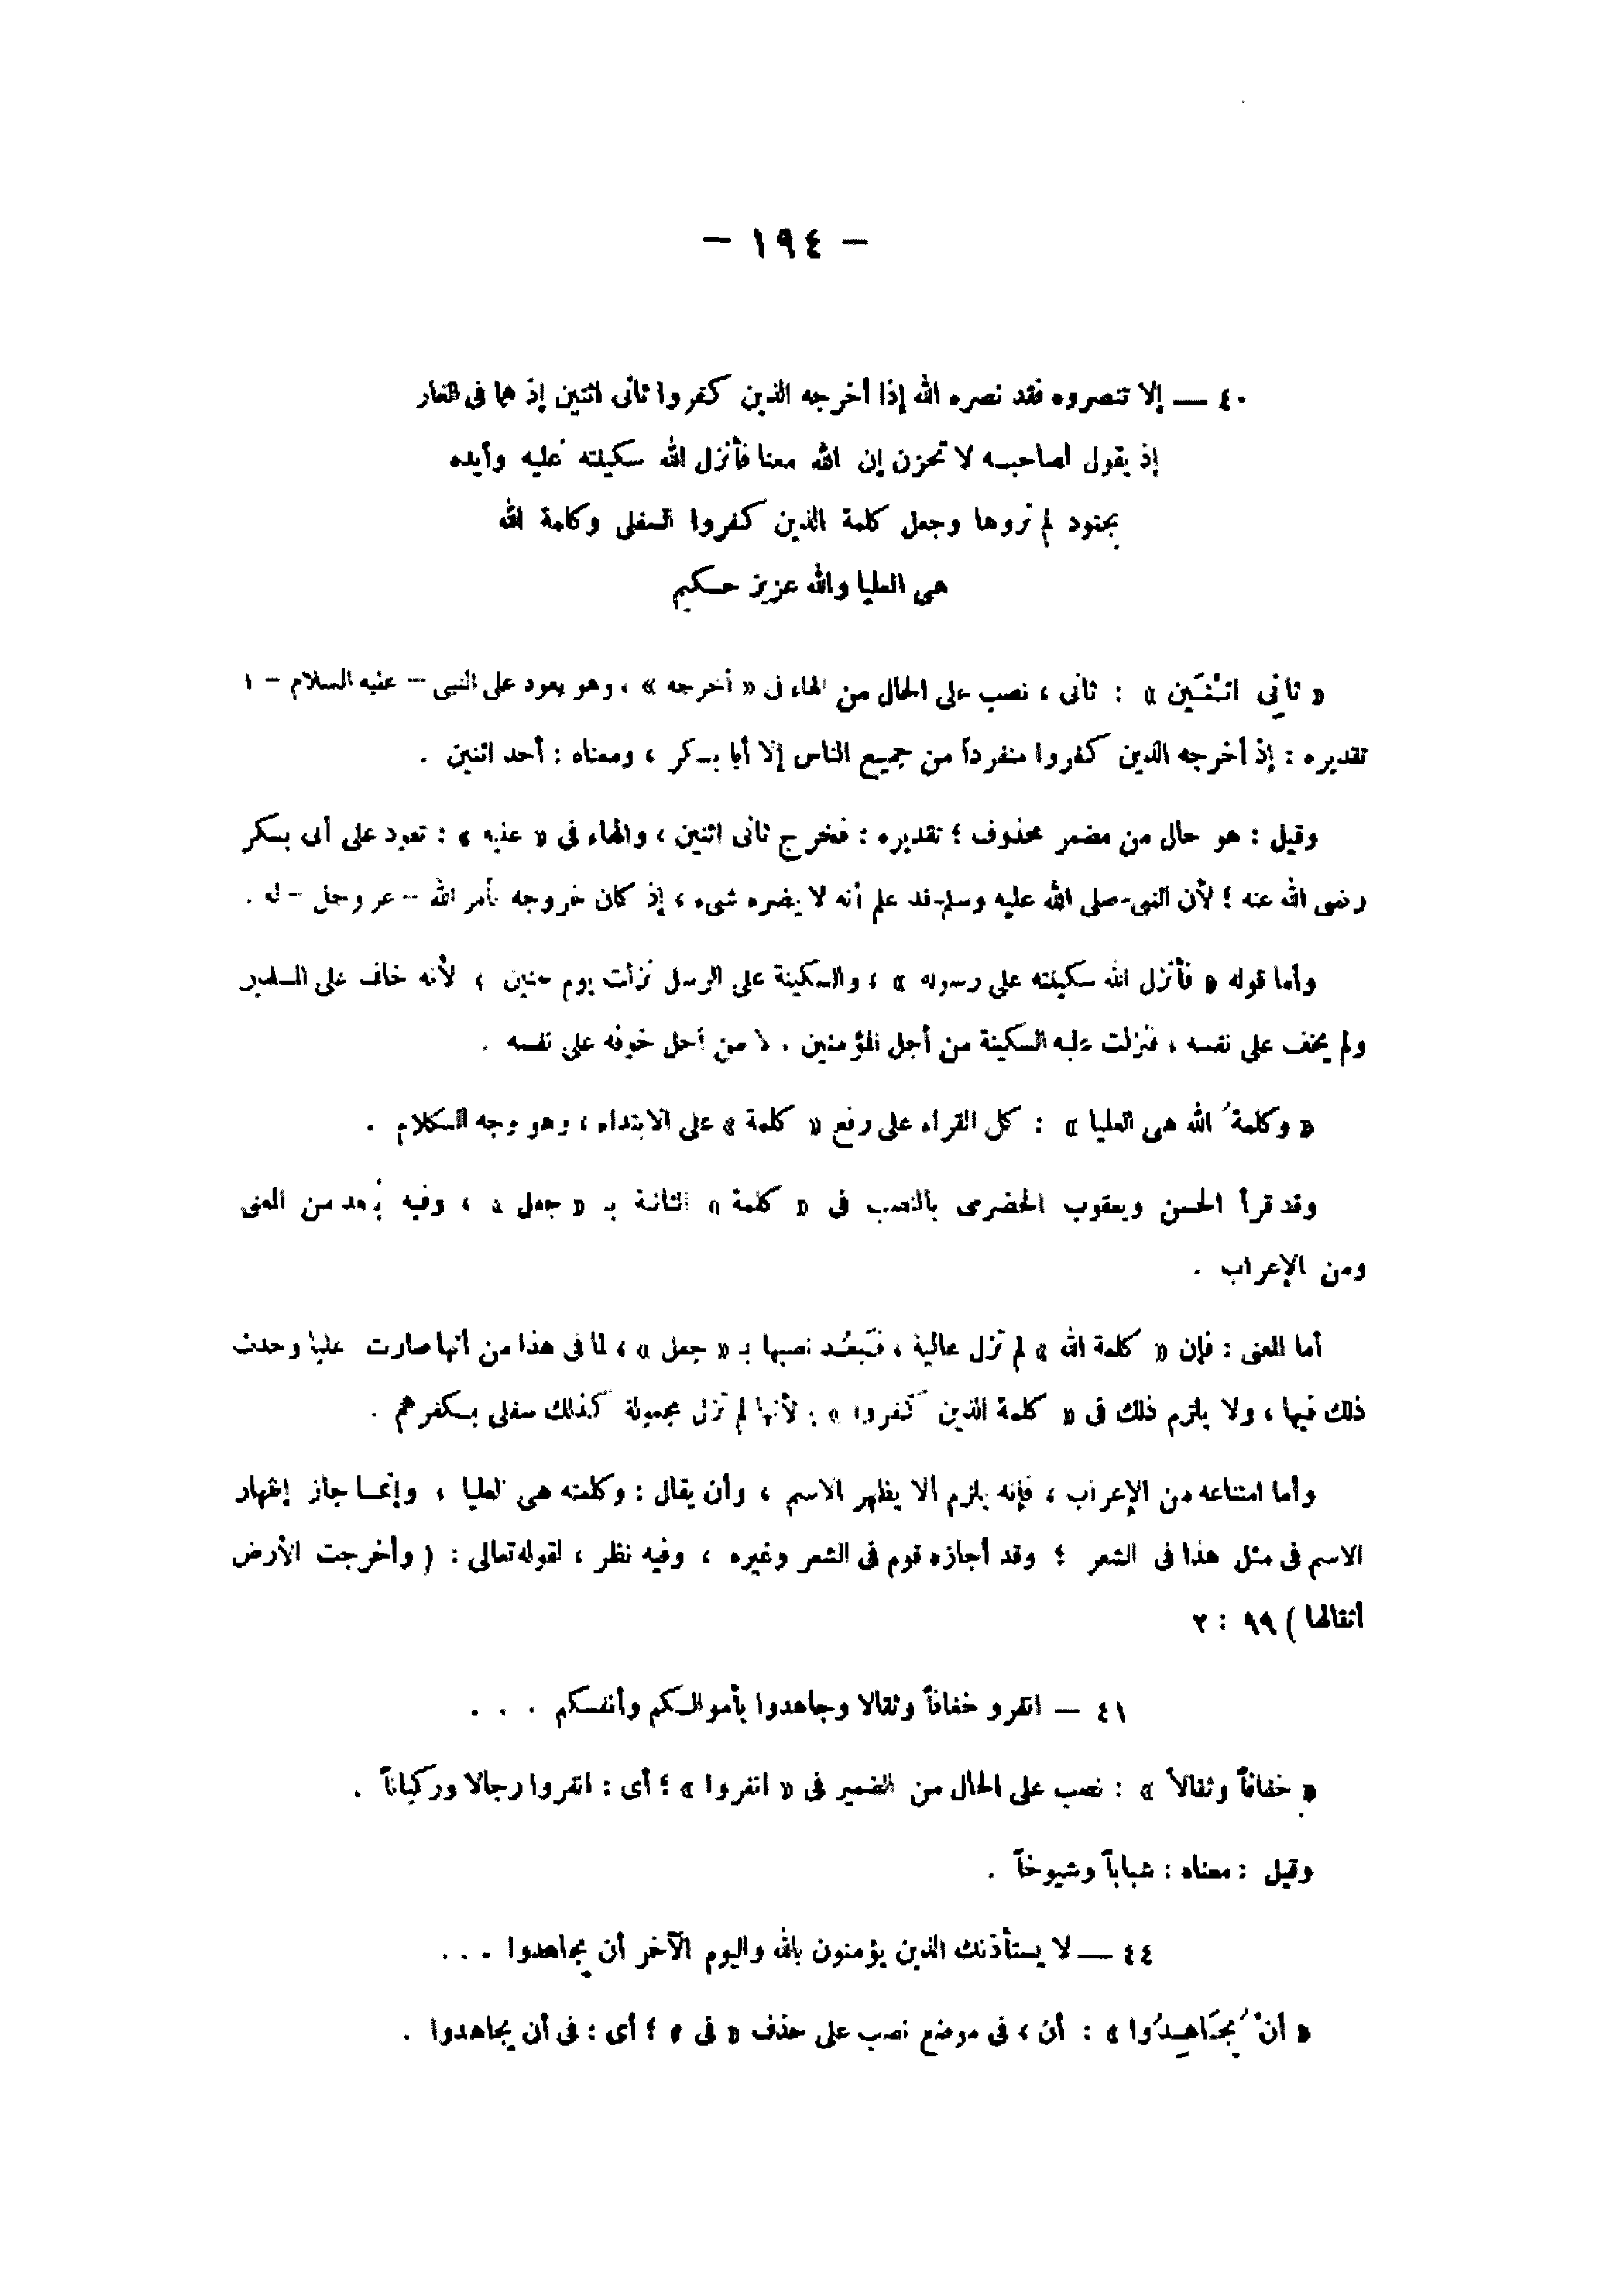 – ١٩٤ –
٤٠ — إلا تنصروه فقد نصره الله إذا أخرجه الذين كفروا ثانى اثنين إذ هما فى الغار
إذ يقول لصاحبه لا تحزن إن الله معنا فأنزل الله سكينته عليه وأيده
بجنود لم تروها وجعل كلمة الذين كفروا السفلى وكلمة الله
هى العليا والله عزيز حكيم
« ثَانِى اثْنَيْن » : ثانى ، نصب على الحال من الهاء فى « أخرجه » ، وهو يعود على النبى – عليه السلام –
تقديره : إذ أخرجه الذين كفروا منفرداً من جميع الناس إلا أبا بكر ، ومعناه : أحد اثنين .
وقيل : هو حال من مضمر محذوف ؛ تقديره : فخرج ثانى اثنين ، والهاء فى « عليه » : تعود على أبى بكر
رضى الله عنه ؛ لأن النبى-صلى الله عليه وسلم-قد علم أنه لا يضره شىء ، إذ كان خروجه بأمر الله – عز وجل – له .
وأما قوله « فأنزل الله سكينته على رسوله » ، والسكينة على الرسل نزلت يوم حنين ، لأنه خاف على المسلمين
ولم يخف على نفسه ، فنزلت عليه السكينة من أجل المؤمنين . لا من أجل خوفه على نفسه .
« وكلمةُ الله هى العليا » : كل القراء على رفع « كلمة » على الابتداء ، وهو وجه الكلام .
وقد قرأ الحسن ويعقوب الحضرمى بالنصب فى « كلمة » الثانية بـ « جعل » ، وفيه بُعد من المعنى
ومن الإعراب .
أما المعنى : فإن « كلمة الله » لم تزل عالية ، فيَبعُد نصبها بـ « جعل » ، لما فى هذا من أنها صارت عليا وحدث
ذلك فيها ، ولا يلزم ذلك فى « كلمة الذين كفروا » ؛ لأنها لم تزل مجعولة كذلك سفلى بكفرهم .
وأما امتناعه من الإعراب ، فإنه يلزم ألا يظهر الاسم ، وأن يقال : وكلمته هى العليا ، وإنما جاز إظهار
الاسم فى مثل هذا فى الشعر ؛ وقد أجازه قوم فى الشعر وغيره ، وفيه نظر ، لقوله تعالى : ( وأخرجت الأرض
أثقالها ) ٩٩ : ٢
٤١ – انفرو خفافاً وثقالا وجاهدوا بأموالكم وأنفسكم . . .
« خفافاً وثقالاً » : نصب على الحال من الضمير فى « انفروا » ؛ أى : انفروا رجالا وركباناً .
وقيل : معناه : شباباً وشيوخاً .
٤٤ — لا يستأذنك الذين يؤمنون بالله واليوم الآخر أن يجاهدوا . . .
« أنْ يُجَاهِدُوا » : أن ، فى موضع نصب على حذف « فى » ؛ أى : فى أن يجاهدوا .